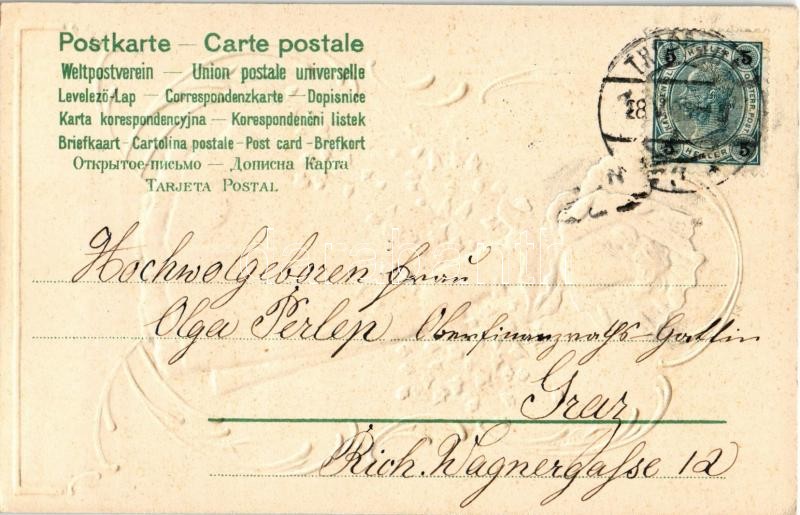 Postkarte — Carte postale
Weltpostverein — Union postale universelle
Levelező-Lap — Correspondenzkarte — Dopisnice
Karta korespondencyjna — Korespondenčni listek
Briefkaart - Cartolina postale - Post card - Brefkort
Открытое-письмо — Дописна Карта
Tarjeta Postal
5 5
5 HELLER 5
28
Hochwolgeboren Frau
Olga Perlep Oberfinanzraths-Gattin
Graz
Rich. Wagnergasse 12